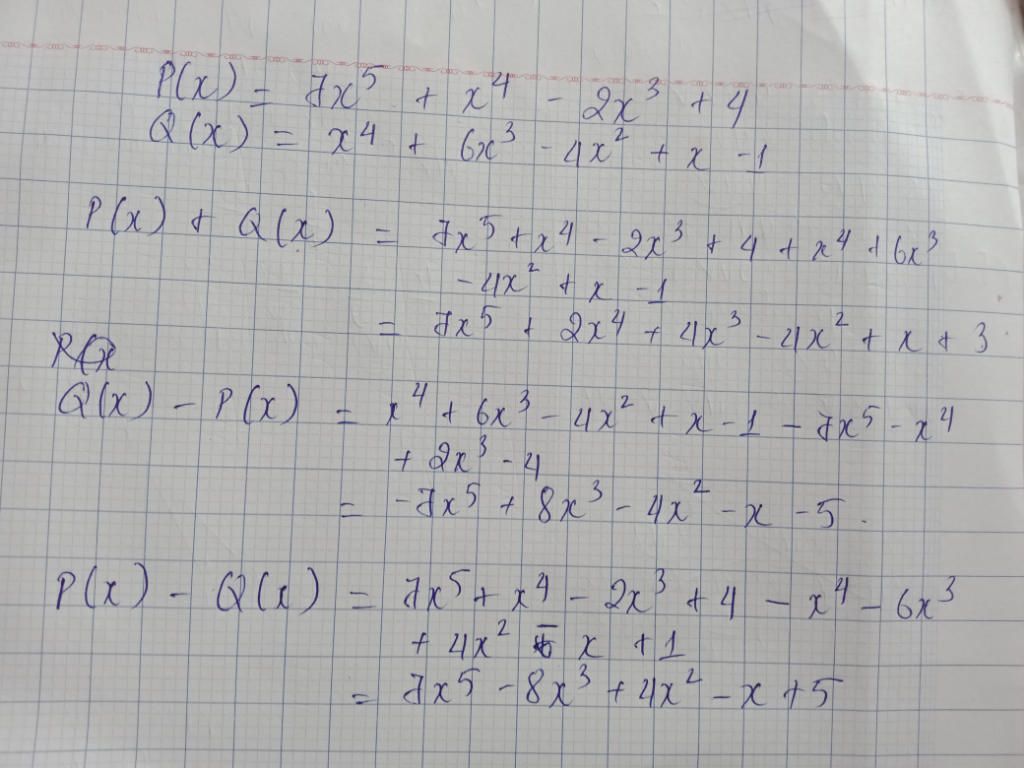 P(x) = 7x⁵ + x⁴ - 2x³ + 4
Q(x) = x⁴ + 6x³ - 4x² + x - 1
P(x) + Q(x) = 7x⁵ + x⁴ - 2x³ + 4 + x⁴ + 6x³
- 4x² + x - 1
= 7x⁵ + 2x⁴ + 4x³ - 4x² + x + 3
Q(x) - P(x) = x⁴ + 6x³ - 4x² + x - 1 - 7x⁵ - x⁴
+ 2x³ - 4
= -7x⁵ + 8x³ - 4x² - x - 5.
P(x) - Q(x) = 7x⁵ + x⁴ - 2x³ + 4 - x⁴ - 6x³
+ 4x² - x + 1
= 7x⁵ - 8x³ + 4x² - x + 5